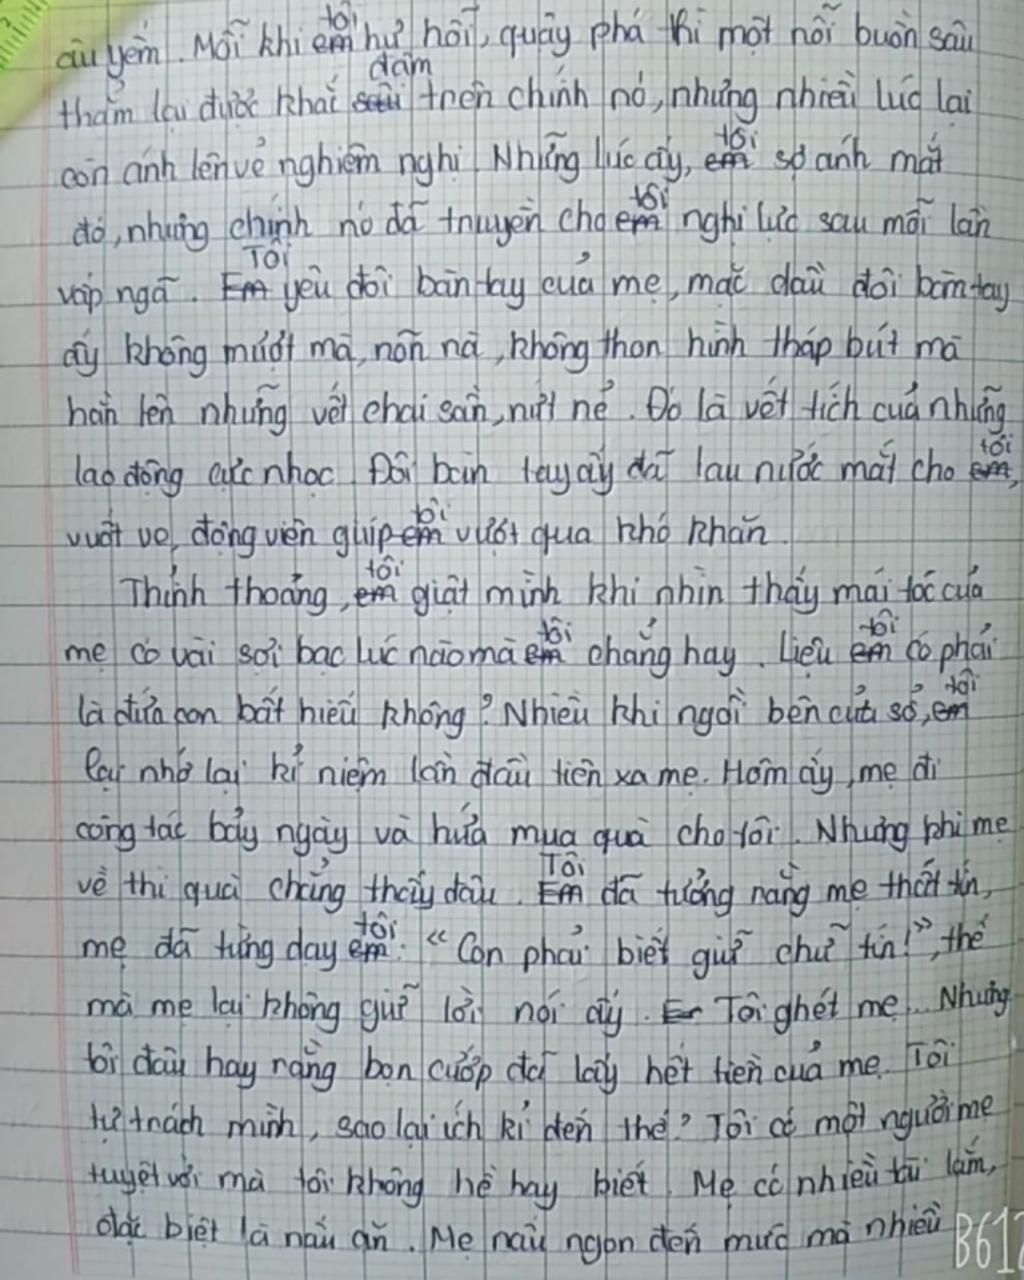 âu yếm. Mỗi khi tôi hư hỗi, quậy phá thì một nỗi buồn sâu
thẳm lại được khắc đậm trên chính nó, nhưng nhiều lúc lại
còn ánh lên vẻ nghiêm nghị. Những lúc ấy, tôi sợ ánh mắt
đó, nhưng chính nó đã truyền cho tôi nghị lực sau mỗi lần
vấp ngã. Tôi yêu đôi bàn tay của mẹ, mặc dầu đôi bàn tay
ấy không mượt mà, nõn nà, không thon hình tháp bút mà
hằn lên những vết chai sần, nứt nẻ. Đó là vết tích của những
lao động cực nhọc. Đôi bàn tay ấy đã lau nước mắt cho tôi,
vuốt ve, động viên giúp tôi vượt qua khó khăn.
Thỉnh thoảng, tôi giật mình khi nhìn thấy mái tóc của
mẹ có vài sợi bạc lúc nào mà tôi chẳng hay. Liệu tôi có phải
là đứa con bất hiếu không? Nhiều khi ngồi bên cửa sổ, tôi
lại nhớ lại kỉ niệm lần đầu tiên xa mẹ. Hôm ấy, mẹ đi
công tác bảy ngày và hứa mua quà cho tôi. Nhưng khi mẹ
về thì quà chẳng thấy đâu. Tôi đã tưởng rằng mẹ thất tín,
mẹ đã từng dạy tôi: "Con phải biết giữ chữ tín!", thế
mà mẹ lại không giữ lời nói ấy. Tôi ghét mẹ... Nhưng
tôi đâu hay rằng bọn cướp đã lấy hết tiền của mẹ. Tôi
tự trách mình, sao lại ích kỉ đến thế? Tôi có một người mẹ
tuyệt vời mà tôi không hề hay biết. Mẹ có nhiều tài lắm,
đặc biệt là nấu ăn. Mẹ nấu ngon đến mức mà nhiều
B612